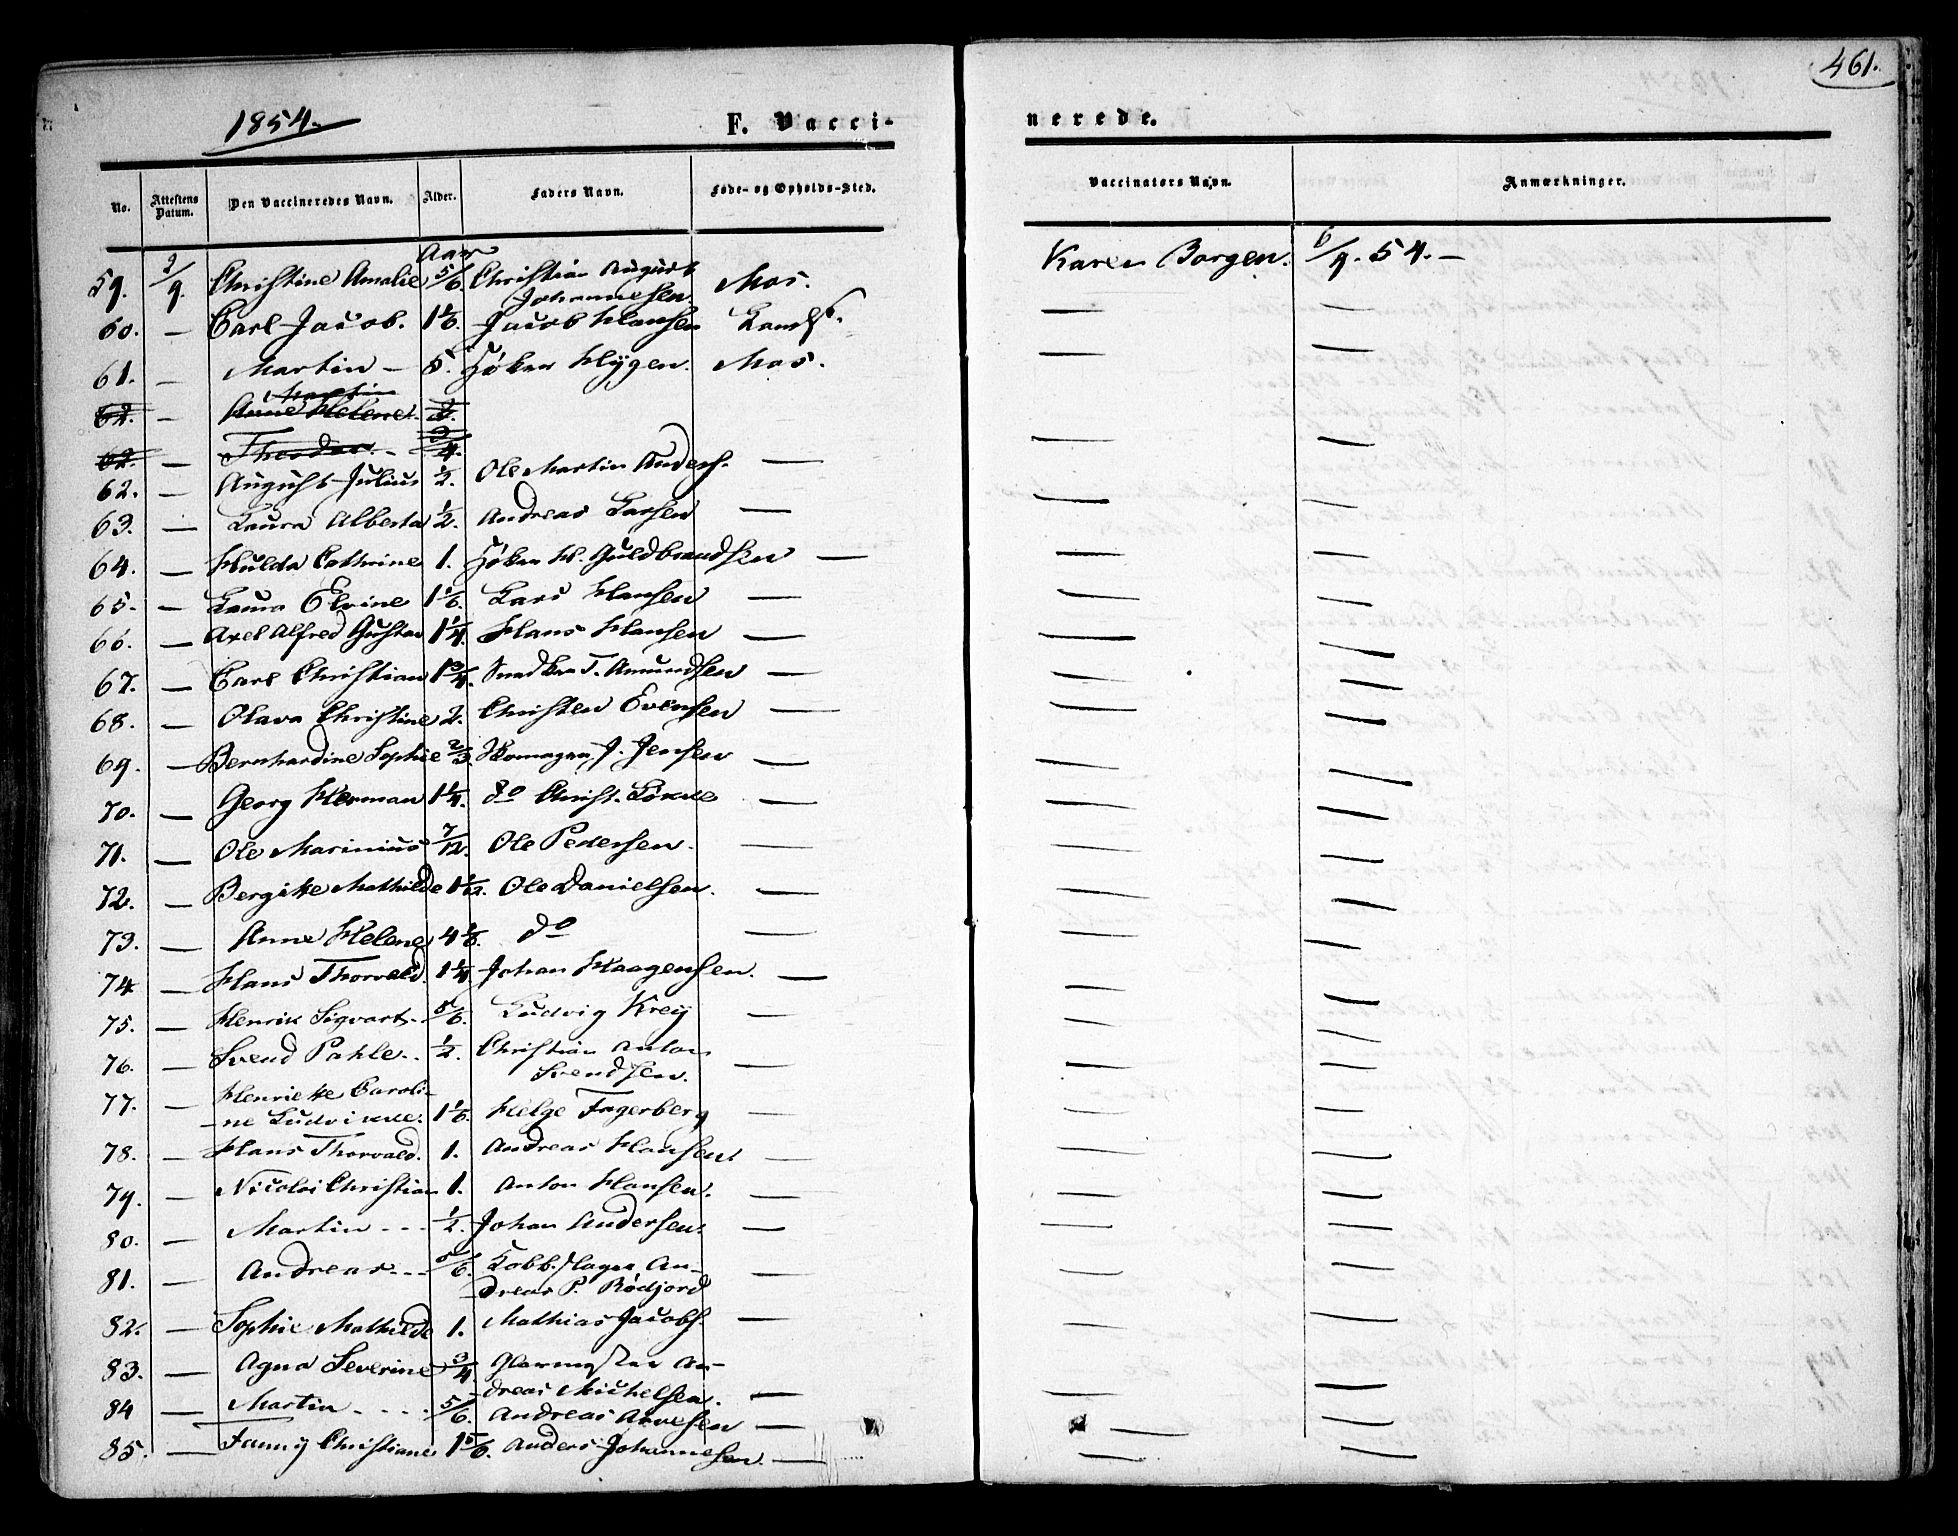 461.
1854.
F. Vacci-
nerede.
No. Attestens Datum. Den Vaccineredes Navn. Alder. Faders Navn. Føde- og Opholds-Sted. Vaccinators Navn. Anmærkninger.
Aar
59. 2/9. Christine Amalie 5/6. Christian August Mos. Karen Borgen. 6/9. 54. —
Johannesen
60. — Carl Jacob. 1 1/6. Jacob Hansen — —
61. — Martin — 5. Høker Hygen. Mos. — —
Martin
62. — Anne Helene
62. — Theodor. - 3/4. — —
62. — August Julius 1/2. Ole Martin Anders. —
63. — Laura Alberta 1/2. Andreas Larsen — — —
64. — Hulda Cathrine 1. Høker H. Guldbrandsen — — —
65. — Laura Elvine 1 1/6. Lars Hansen — — —
66. — Axel Alfred Gustav 1 1/4. Hans Hansen — — —
67. — Carl Christian 1 3/4. Snedker T. Amundsen — — —
68. — Olava Christine 2. Christen Evensen — — —
69. — Bernhardine Sophie 2/3. J. Jensen — — —
70. — Georg Herman 1 1/4. do Christ. — — —
71. — Ole Marinius 7/12. Ole Pedersen. — — —
72. — Bergite Mathilde 1 1/12. Ole Danielsen. — — —
73. — Anne Helene 4 1/6. do — — —
74 — Hans Thorvald. 1 1/4. Johan Haagensen. — — —
75. — Henrik Sigvart. - 5/6. Ludvig Krey — — —
76. — Svend Pahle. . 1/2. Christian Anton
Svendsen. — — —
77. — Henriette Caroli-
ne Ludvikke. 1 1/6. Helge Fagerberg — — —
78. — Hans Thorvald. 1. Andreas Hansen — — —
79. — Nicolai Christian 1. Anton Hansen. — — —
80. — Martin - - - 1/2. Johan Andersen. — — —
81. — Andreas. - - 5/6. Kobb.slager An-
dreas P. Rødjord — — —
82. — Sophie Mathilde 1. Mathias Jacobs. — — —
83. — Agna Severine 3/4 Glarmester An-
dreas Michelsen. — — —
84 — Martin - - - . 5/6. Andreas Arvesen — — —
85. — Fanny Christiane 1 5/6. Anders Johannesen. — — —